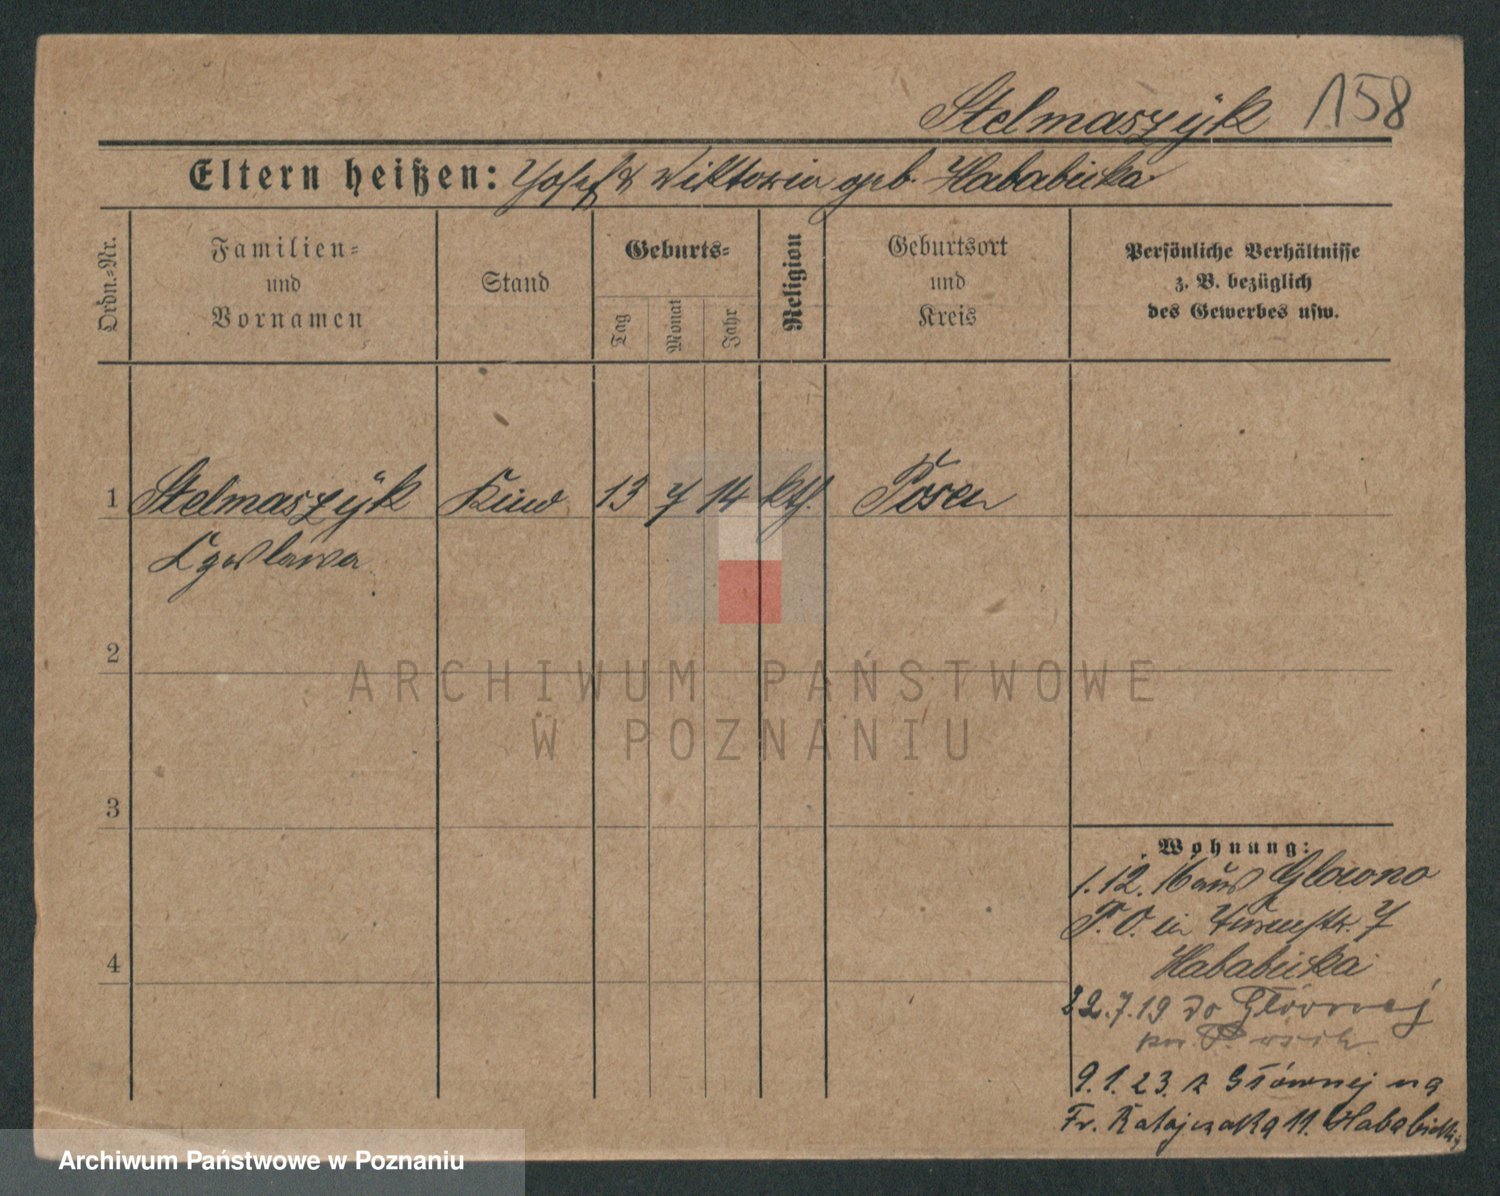 Stelmaszÿk 158
Eltern heißen: Josef & Wiktoria geb. Hababicka
Ordn.-Nr.
Familien-
und
Vornamen
Stand
Geburts-
Tag
Monat
Jahr
Religion
Geburtsort
und
Kreis
Persönliche Verhältnisse
z. B. bezüglich
des Gewerbes usw.
1 Stelmaszÿk Kind 13 7 14 kth. Posen
2
3
4
Wohnung:
1.12. 16 aus Glowno
P. O. in 7
Hababicka
22.7.19 do Głównej
9.1.23. z Głównej na
Fr. Ratajczaka 11. Hababicka
ARCHIWUM PAŃSTWOWE
W POZNANIU
Archiwum Państwowe w Poznaniu